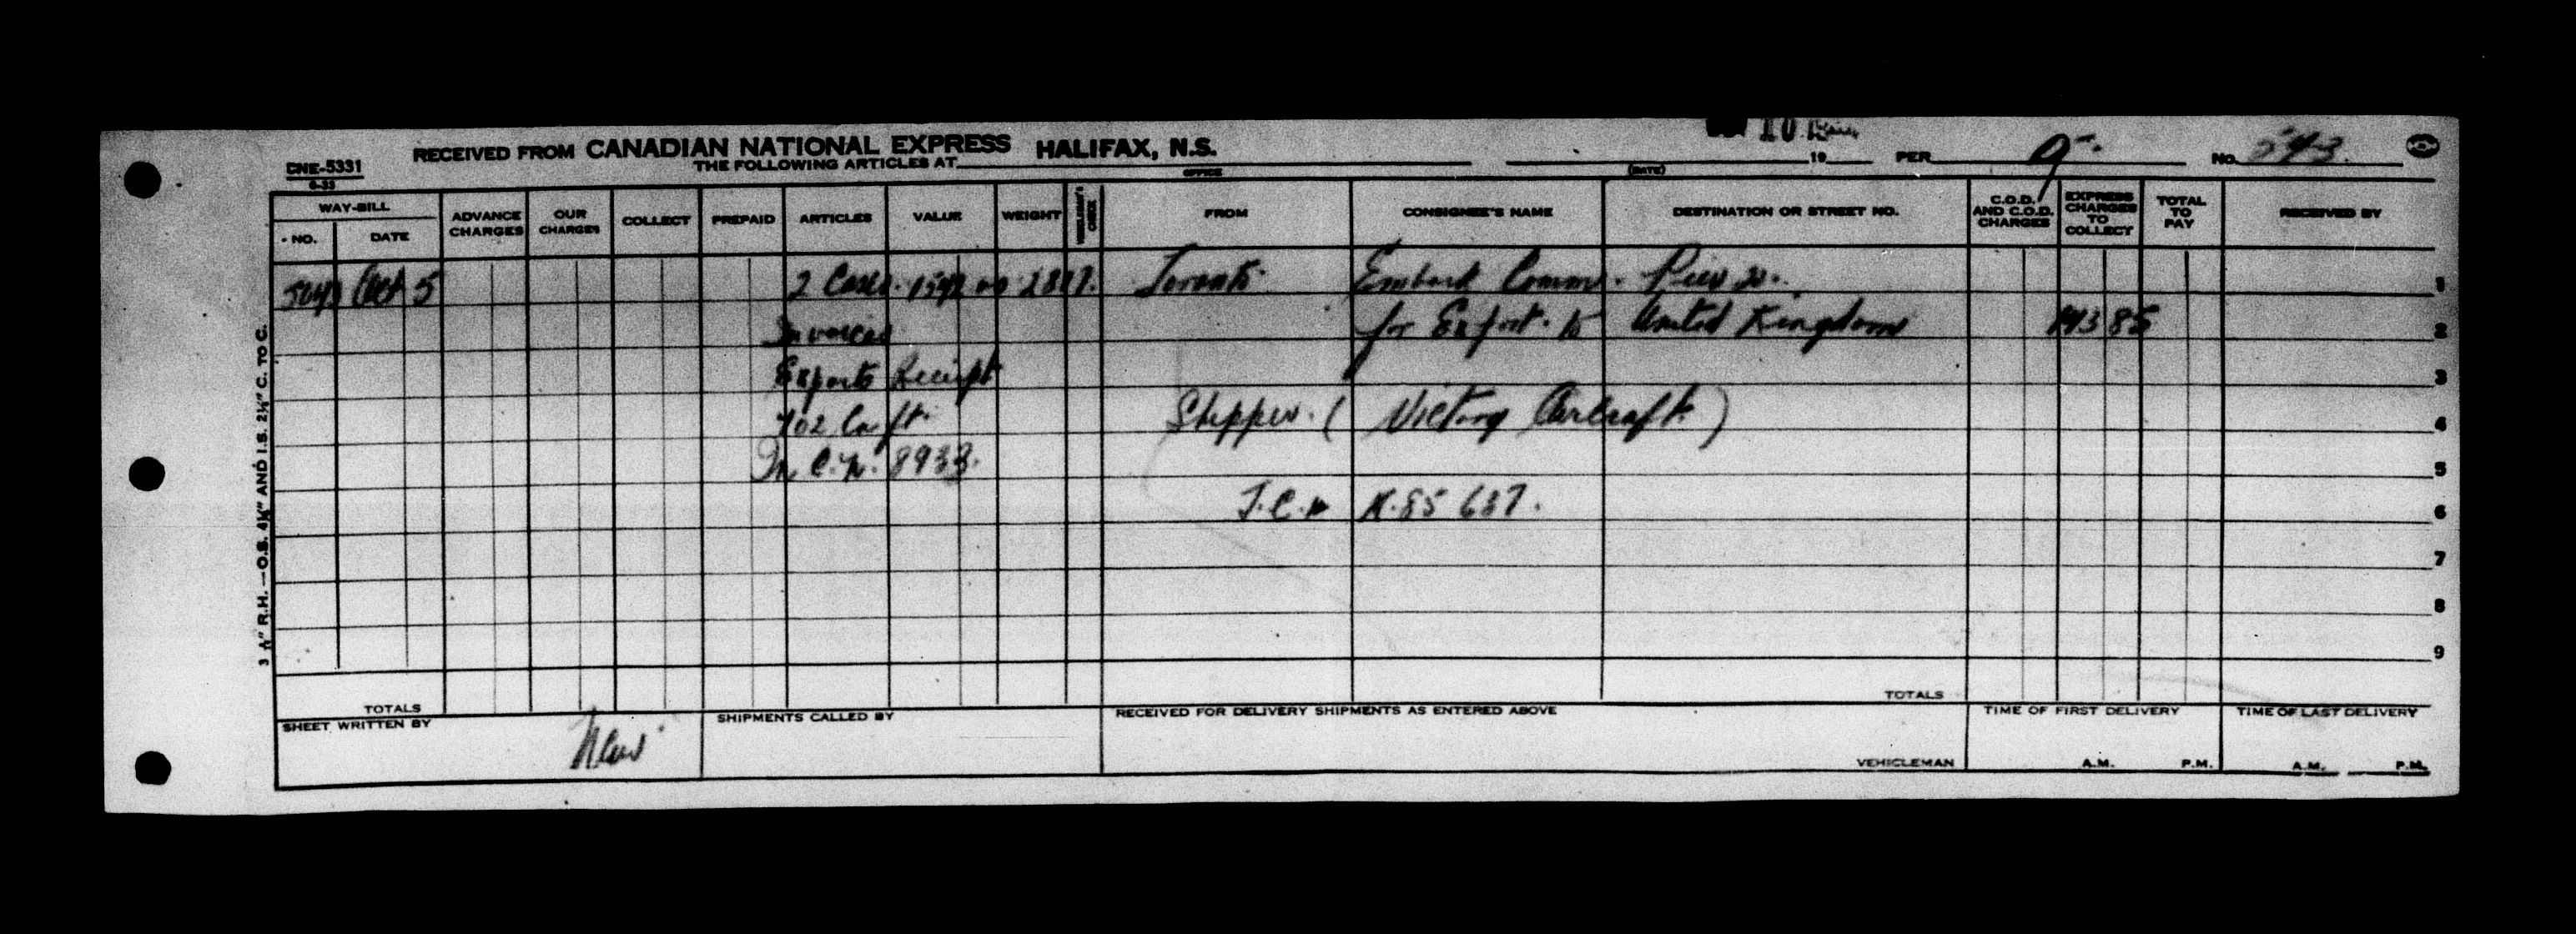 CNE-5331
6-33
RECEIVED FROM CANADIAN NATIONAL EXPRESS HALIFAX, N.S.
THE FOLLOWING ARTICLES AT
OFFICE
(DATE)
19
PER
No. 543
WAY-BILL
NO. DATE
ADVANCE CHARGES
OUR CHARGES
COLLECT
PREPAID
ARTICLES
VALUE
WEIGHT
VEHICLEMAN'S CHECK
FROM
CONSIGNEE'S NAME
DESTINATION OR STREET NO.
C.O.D. AND C.O.D. CHARGES
EXPRESS CHARGES TO COLLECT
TOTAL TO PAY
RECEIVED BY
Oct 5 2 Cases Toronto Embark Comm. Pier 20. 1
Invoices for Export to United Kingdom 143 85 2
Exports Receipt 3
Shipper. (Victory Aircraft.) 4
8933. 5
T.C. K.85 637. 6
7
8
9
3 ½" R.H.—O.S. 4¼" AND I.S. 2½" C. TO C.
TOTALS
TOTALS
SHEET WRITTEN BY
SHIPMENTS CALLED BY
RECEIVED FOR DELIVERY SHIPMENTS AS ENTERED ABOVE
VEHICLEMAN
TIME OF FIRST DELIVERY
A.M. P.M.
TIME OF LAST DELIVERY
A.M. P.M.